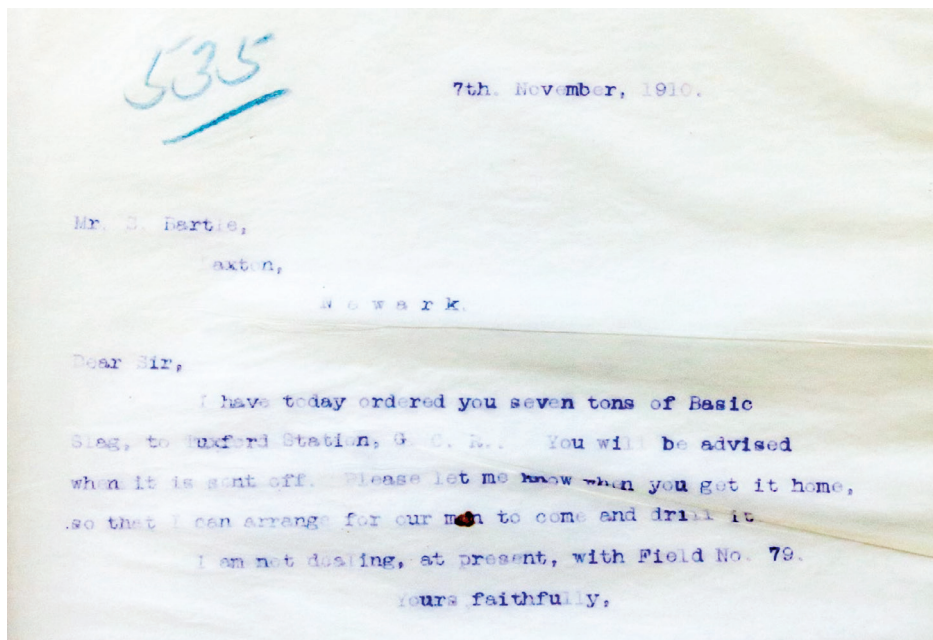 535
7th. November, 1910.
Mr. S. Bartle,
Laxton,
Newark.
Dear Sir,
I have today ordered you seven tons of Basic
Slag, to Tuxford Station, G. C. R.. You will be advised
when it is sent off. Please let me know when you get it home,
so that I can arrange for our man to come and drill it.
I am not dealing, at present, with Field No. 79.
Yours faithfully,